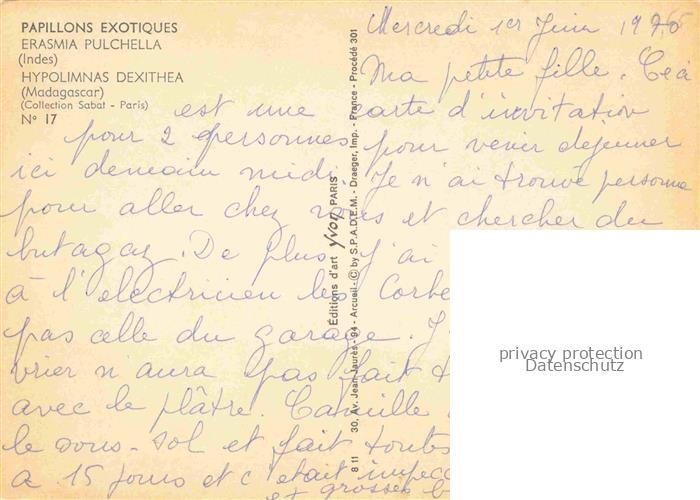 PAPILLONS EXOTIQUES
ERASMIA PULCHELLA
(Indes)
HYPOLIMNAS DEXITHEA
(Madagascar)
(Collection Sabat - Paris)
N° 17
Mercredi 1er Juin 1970
Ma petite fille. Ceci
est une carte d'invitation
pour 2 personnes pour venir déjeuner
ici demain midi. Je n'ai trouvé personne
pour aller chez vous et chercher du
butagaz. De plus j'ai
à l'électricien les
pas celle du garage. J
vrier n'aura pas fait
avec le plâtre. Camille
le sous-sol et fait toutes
a 15 jours et c'était impecc
et grosses b
Éditions d'art yvon PARIS
8 11 30, Av. Jean-Jaurès - 94 - Arcueil - © by S.P.A.D.E.M. - Draeger, Imp. - France - Procédé 301
privacy protection
Datenschutz